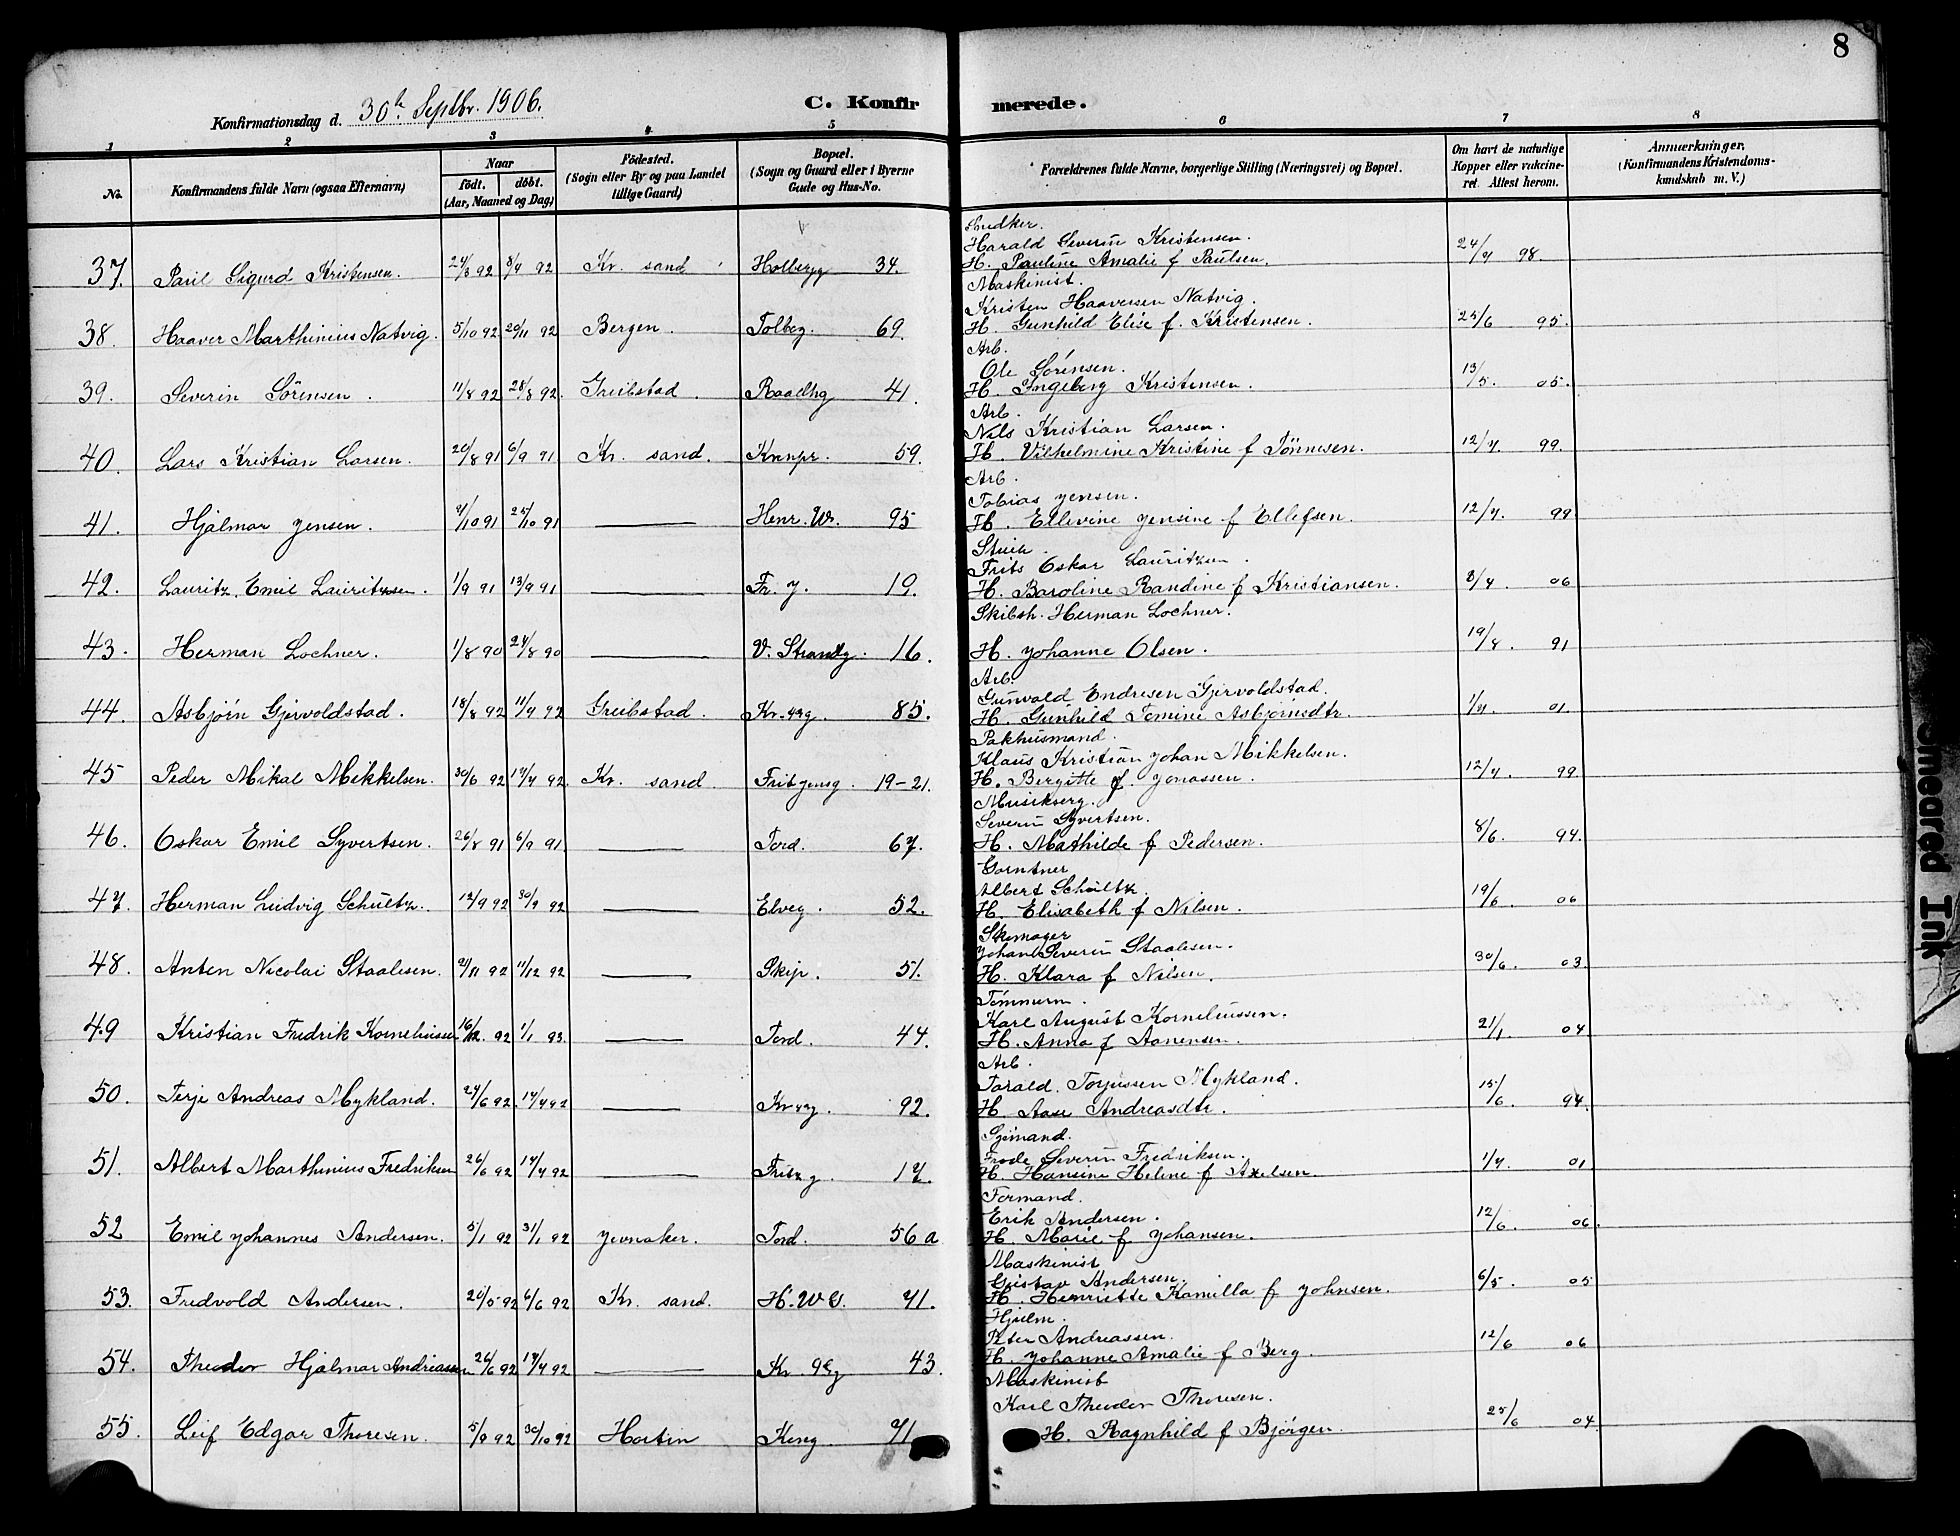 8
Konfirmationsdag d. 30te Septbr. 1906.
C. Konfirmerede.
1 2 3 4 5 6 7 8
No.
Konfirmandens fulde Navn (ogsaa Efternavn)
Naar
födt. döbt.
(Aar, Maaned og Dag)
Födested.
(Sogn eller By og paa Landet
tillige Gaard)
Bopæl.
(Sogn og Gaard eller i Byerne
Gade og Hus-No.
Forældrenes fulde Navne, borgerlige Stilling (Næringsvei) og Bopæl.
Om havt de naturlige
Kopper eller vakcine-
ret. Attest herom.
Anmærkninger,
(Konfirmandens Kristendoms-
kundskab m. V.)
Snedker.
Harald Severin Kristensen.
37. Paul Sigurd Kristensen. 92 92 Kr. sand Holbergg 34. H. Pauline Amalie f Paulsen. 24/4 98.
Maskinist.
Kristen Haaversen Natvig.
38. Haaver Marthinius Natvig. 5/10 92 20/11 92 Bergen. Tolbg. 69. H. Gunhild Elise f. Kristensen. 25/6 95.
Arb.
Ole Sörensen.
39. Severin Sörensen. 11/8 92 28/8 92. Greibstad. Raadhg 41. H. Ingeborg Kristensen. 13/5. 05.
Arb.
Nils Kristian Larsen.
40. Lars Kristian Larsen. 20/8 91 6/9 91 Kr. sand. Knnpr. 59. H. Vilhelmine Kristine f Tönnesen. 12/4. 99.
Arb.
Tobias Jensen.
41. Hjalmar Jensen. 91 25/10 91 — Henr. W. 95 H. Ellevine Jensine f Ellefsen. 12/4. 99
Frits Oskar Lauritzsen.
42. Lauritz. Emil Lauritzsen. 1/9 91 13/9 91 — Fr. 7. 19. H. Baroline Randine f Kristiansen. 3/4. 06
Skibsh. Herman Lochner.
43. Herman Lochner. 1/8 90 24/8 90 — V. Strandg. 16. H. Johanne Olsen. 91
Arb.
Gunvald Endresen Gjervoldstad.
44. Asbjörn Gjervoldstad. 92 92 Greibstad. 85. H. Gunhild Tomine Asbjörnsdtr. 01.
Pakhusmand.
Klaus Kristian Johan Mikkelsen.
45 Peder Mikal Mikkelsen. 30/6 92 17/4 92. Kr. sand. 19-21. H. Bergitte f. Jonassen. 12/4. 99
Severin Syvertsen.
46. Oskar Emil Syvertsen. 26/8 91 6/9 91. — Tord. 67. H. Mathilde f Pedersen. 8/6. 94.
Gorntner
Albert Schultz.
47. Herman Ludvig Schultz. 12/9 92 30/9 92 — Elveg. 52. H. Elisabeth f Nilsen. 19/6 06
Skomager
Johan Severin Staalesen.
48. Anton Nicolai Staalesen. 92 11/12 92 — Skip. 51. H. Klara f Nilsen. 30/6. 03.
Tömmerm.
Karl August Korneliussen.
49 Kristian Fredrik Korneliussen 16/12. 92 1/1 93. — Tord. 44. H. Anna f Aanensen. 21/1 04
Arb.
Tarald. Torjussen Mykland.
50. Terje Andreas Mykland. 24/6 92. 17/4 92 — 92. H. Aase Andreasdtr. 15/6. 94.
Sjömand.
Frode Severin Fredriksen.
51. Albert Marthinius Fredriksen 26/6 92 17/4 92 — Fritz g. 17. H. Hansine Helene f Axelsen. 1/4. 01
Formand.
Erik Andersen.
52 Emil Johannes Andersen. 5/1 92 31/1 92 Jevnaker. Tord. 56 a H. Marie f Johansen. 12/6. 06.
Maskinist
Gustav Andersen.
53. Fredvold Andersen. 20/5 92 6/6 92 Kr. sand. H. W G. 71. H. Henriette Kamilla f Johnsen. 6/5. 05
Peter Andreassen.
54. Theodor Hjalmar Andreassen 26/6 92 17/4 92 — 43. H. Johanne Amalie f Berg. 12/6 06
Maskinist
Karl Theodor Thoresen.
55. Leif Edgar Thoresen. 5/9 92 30/10 92 Horten Kong. 71 H. Ragnhild f Björgen. 25/6 04.
Smeared Ink